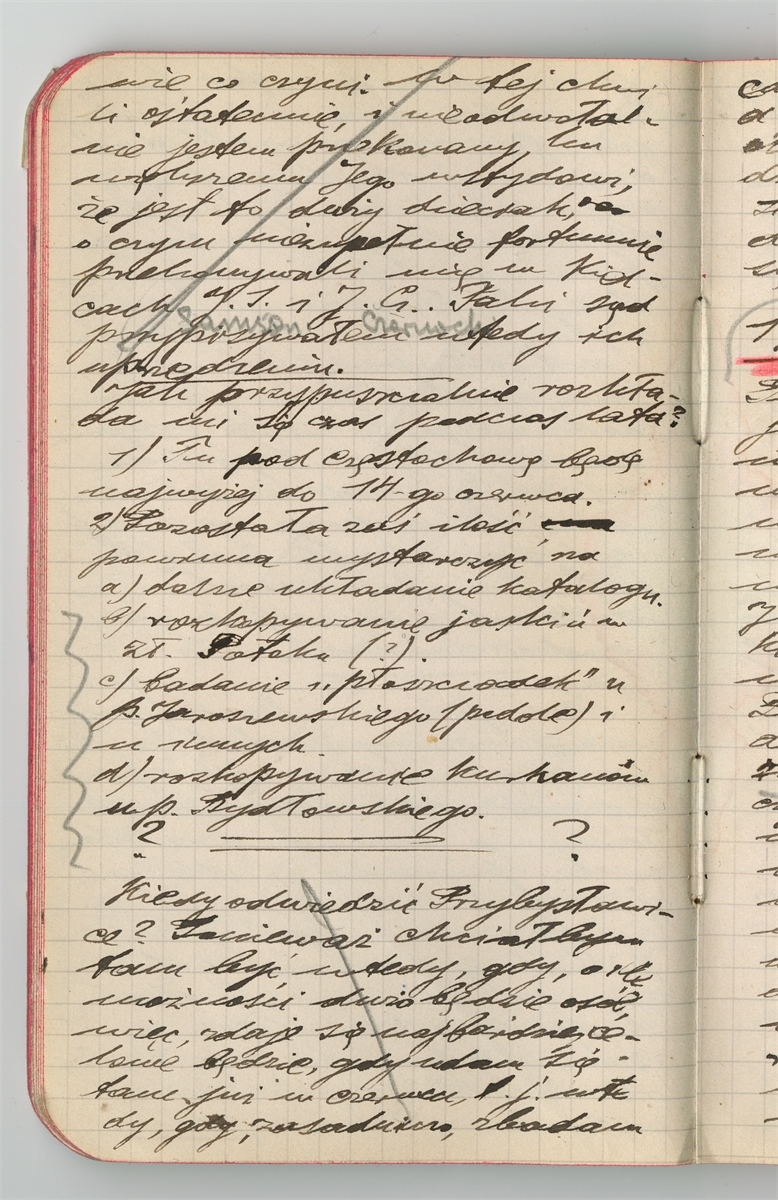 wie co czyni. W tej chwi
li ostatecznie, i nieodwołal-
nie jestem przekonany, ku
Jego wstydowi,
że jest to duży dzieciak,
o czym niezupełnie fortunnie
przekonywali mię w Kiel-
cach J. S. i J. C.. Fakt zaś
Samson Czarnoch
przypisywałem wtedy ich
uprzedzeniu.
Jak przypuszczalnie rozkła-
da mi się czas podczas lata?
1) Tu pod Częstochową będę
najwyżej do 14-go czerwca.
2) Pozostała zaś ilość
powinna wystarczyć na
a) dalsze układanie katalogu.
b) rozkopywanie jaskiń w
Zł. Potoku (?)
c) badanie n. "płaszczadek" u
p. Jaroszewskiego (podole) i
u innych.
d) rozkopywanie kurhanów
u p. Bydłowskiego.
? ?
Kiedy odwiedzić Przybysławi-
ce? Ponieważ chciałbym
tam być wtedy, gdy, o ile
możności dużo będzie osób,
więc, zdaje się najbardziej ce-
lowe będzie, gdy udam się
tam już w czerwcu, t. j. wte
dy, gdy, zasadniczo, zbadam